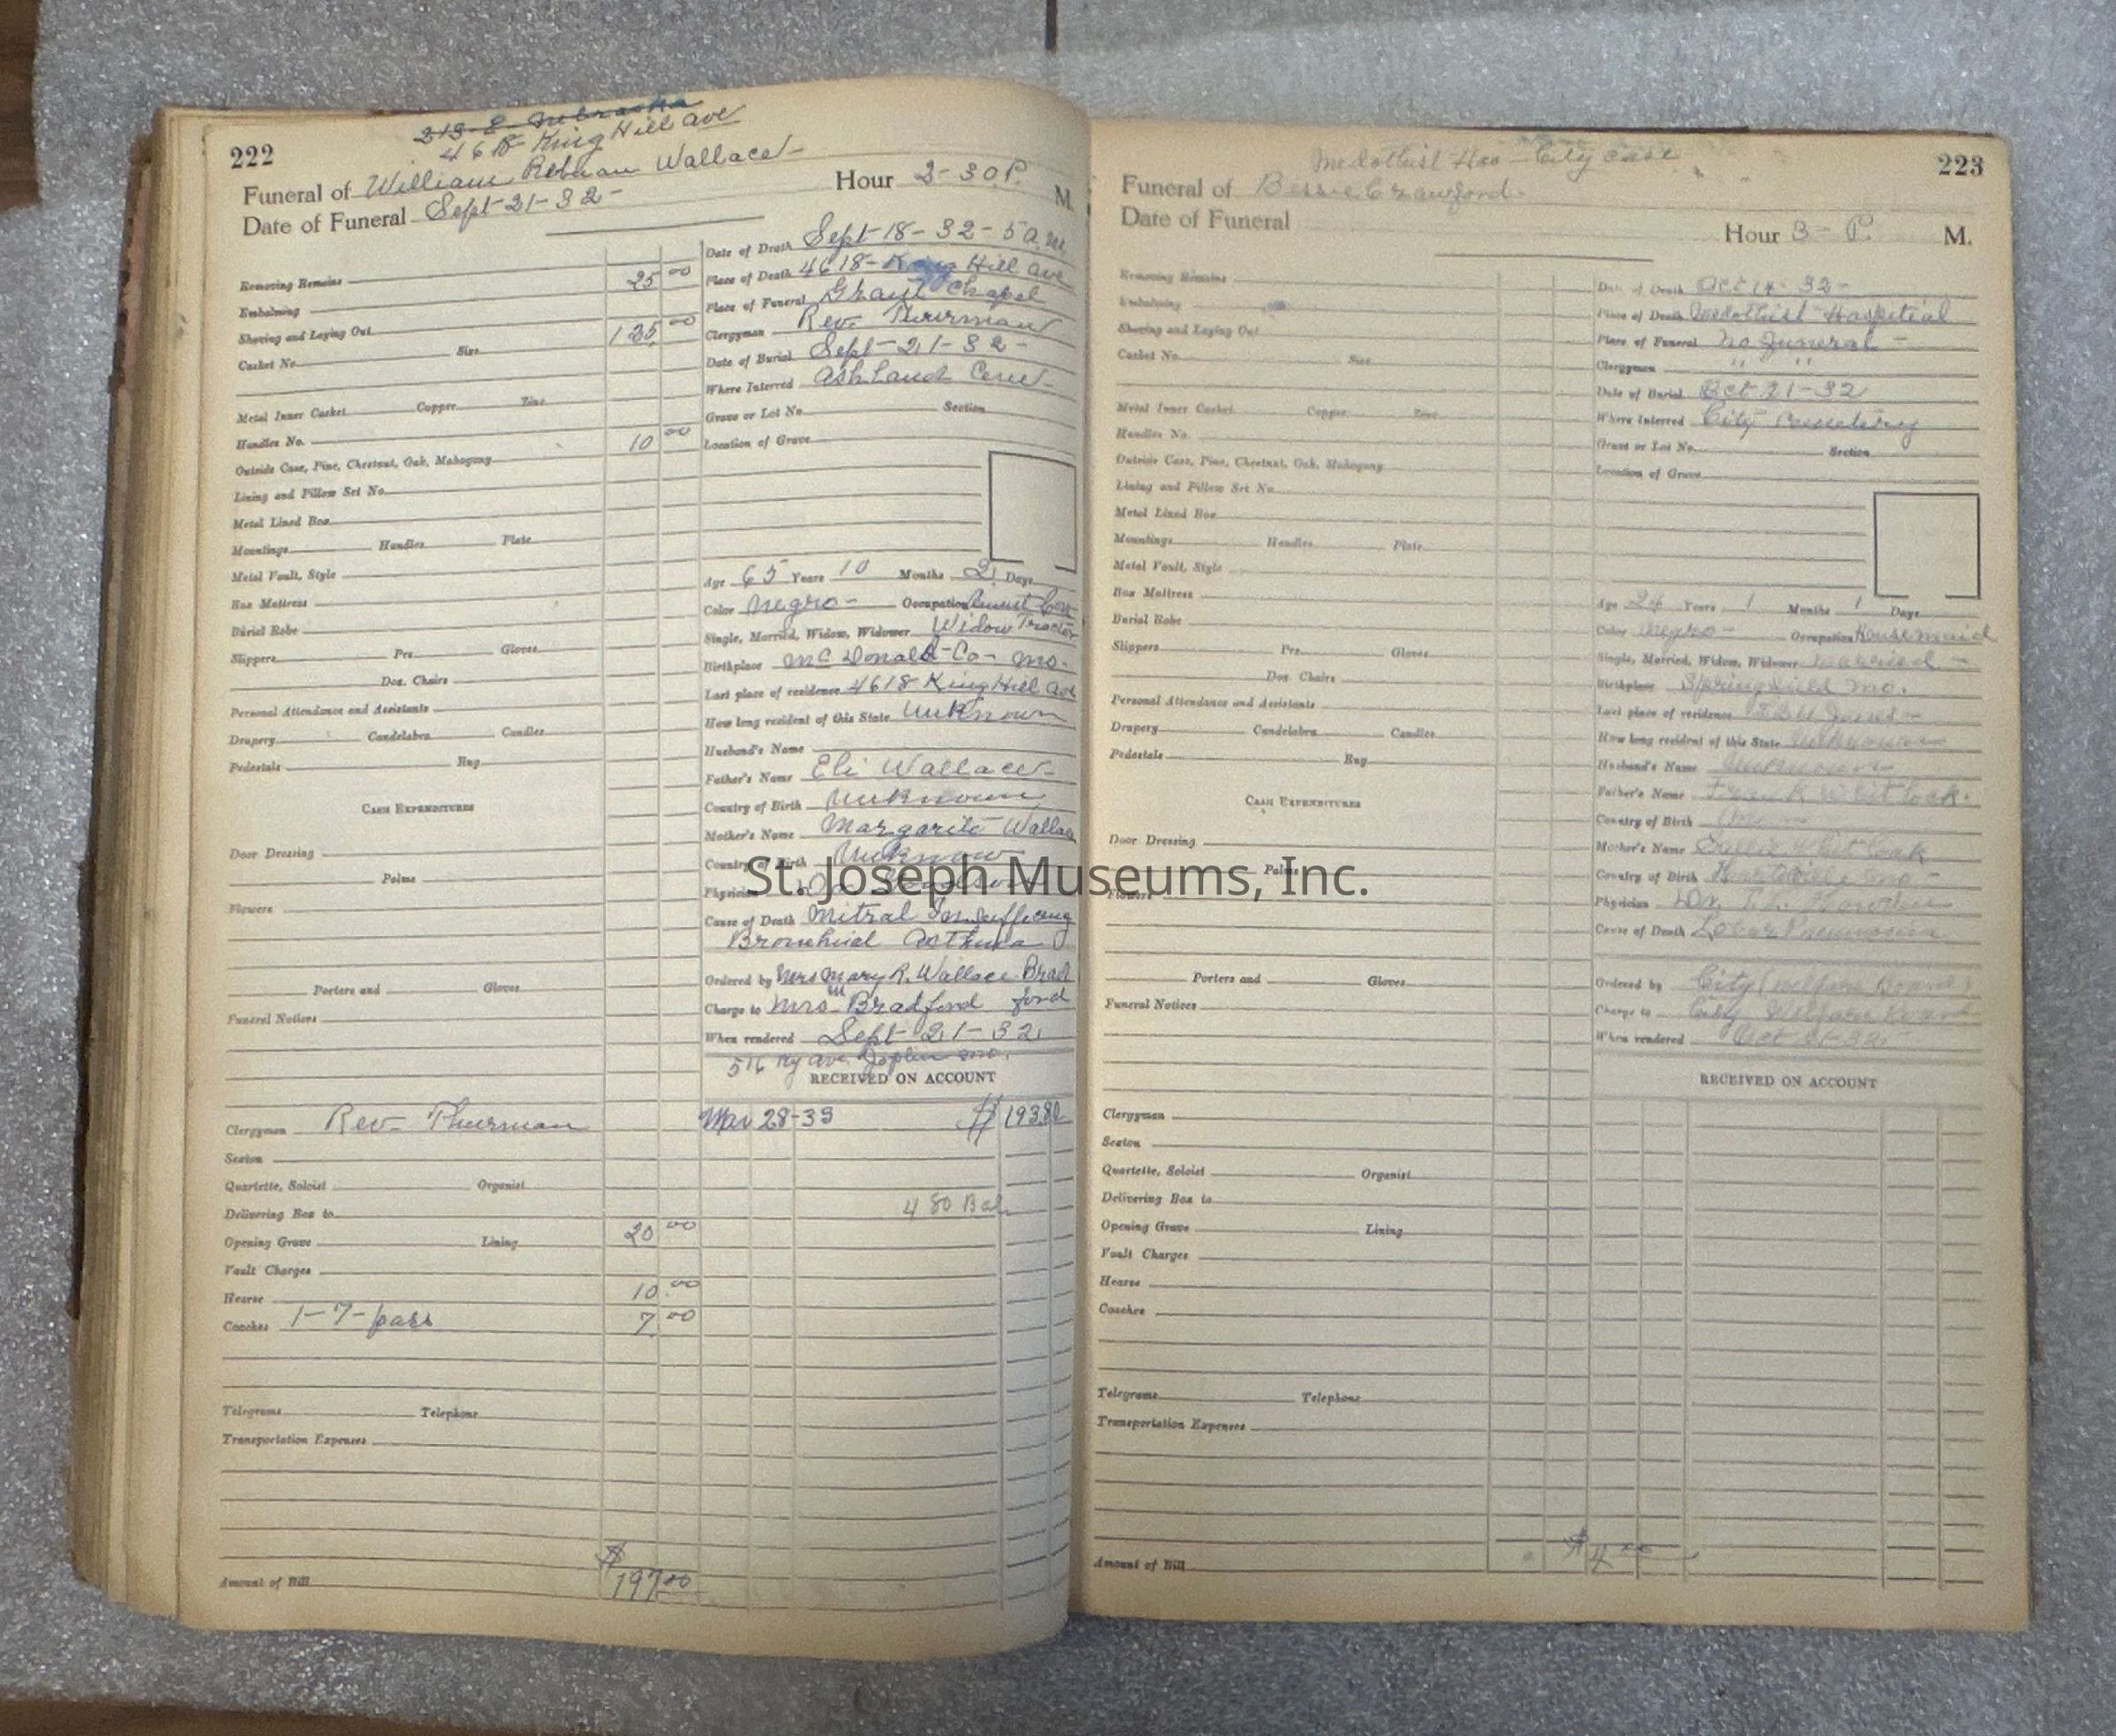 222
4618 King Hill Ave
Funeral of William Wallace
Hour 2-30 P. M.
Date of Funeral Sept-21-32-
Removing Remains
Embalming 25 00
Shaving and Laying Out
Casket No. Size 135 00
Metal Inner Casket Copper Zinc
Handles No.
Outside Case, Pine, Chestnut, Oak, Mahogany 10 00
Lining and Pillow Set No.
Metal Lined Box
Mountings Handles Plate
Metal Vault, Style
Box Mattress
Burial Robe
Slippers Prs. Gloves
Doz. Chairs
Personal Attendance and Assistants
Drapery Candelabra Candles
Pedestals Rug
CASH EXPENDITURES
Door Dressing
Palms
Flowers
Porters and Gloves
Funeral Notices
Clergyman Rev- Thurman
Sexton
Quartette, Soloist Organist
Delivering Box to
Opening Grave Lining 20 00
Vault Charges
Hearse 10.00
Coaches 1-7-pass 7.00
Telegrams Telephone
Transportation Expenses
Amount of Bill $197 00
Date of Death Sept-18-32-5 a.m.
Place of Death 4618-King Hill Ave
Place of Funeral Grant Chapel
Clergyman Rev. Thurman
Date of Burial Sept-21-32-
Where Interred Ashland Cem-
Grave or Lot No. Section
Location of Grave
Age 65 Years 10 Months 2 Days
Color Negro- Occupation Cement Con
Single, Married, Widow, Widower Widow Tractor
Birthplace McDonald-Co-Mo.
Last place of residence 4618 King Hill Ave
How long resident of this State Unknown
Husband's Name
Father's Name Eli Wallace-
Country of Birth Unknown
Mother's Name Margarite Wallace
Country of Birth Unknown
Physician Dr.
Cause of Death Mitral Insufficiency
Bronchial Asthma
Ordered by Mrs Mary R. Wallace-Brad
Charge to Mrs M Bradford ford
When rendered Sept-21-32
516 Ky Ave. Joplin Mo.
RECEIVED ON ACCOUNT
Mar 28-33 $
4 80 Bal
St. Joseph Museums, Inc.
223
Methodist Hos-City Case
Funeral of Bessie Crawford.
Date of Funeral
Hour 3- P. M.
Removing Remains
Embalming
Shaving and Laying Out
Casket No. Size
Metal Inner Casket Copper Zinc
Handles No.
Outside Case, Pine, Chestnut, Oak, Mahogany
Lining and Pillow Set No.
Metal Lined Box
Mountings Handles Plate
Metal Vault, Style
Box Mattress
Burial Robe
Slippers Prs. Gloves
Doz. Chairs
Personal Attendance and Assistants
Drapery Candelabra Candles
Pedestals Rug
CASH EXPENDITURES
Door Dressing
Palms
Flowers
Porters and Gloves
Funeral Notices
Clergyman
Sexton
Quartette, Soloist Organist
Delivering Box to
Opening Grave Lining
Vault Charges
Hearse
Coaches
Telegrams Telephone
Transportation Expenses
Amount of Bill $4 00
Date of Death Oct 32-
Place of Death Methodist Hospital
Place of Funeral No Funeral-
Clergyman " "
Date of Burial Oct 21-32
Where Interred City Cemetery
Grave or Lot No. Section
Location of Grave
Age Years 1 Months 1 Days
Color Negro- Occupation Housemaid
Single, Married, Widow, Widower Married-
Birthplace Springfield Mo.
Last place of residence
How long resident of this State Unknown
Husband's Name Unknown
Father's Name Frank Whitlock.
Country of Birth
Mother's Name Sallie Whitlock
Country of Birth Hartville Mo-
Physician Dr.
Cause of Death Lobar Pneumonia
Ordered by City (Welfare Board)
Charge to City Welfare Board
When rendered Oct 21-32
RECEIVED ON ACCOUNT